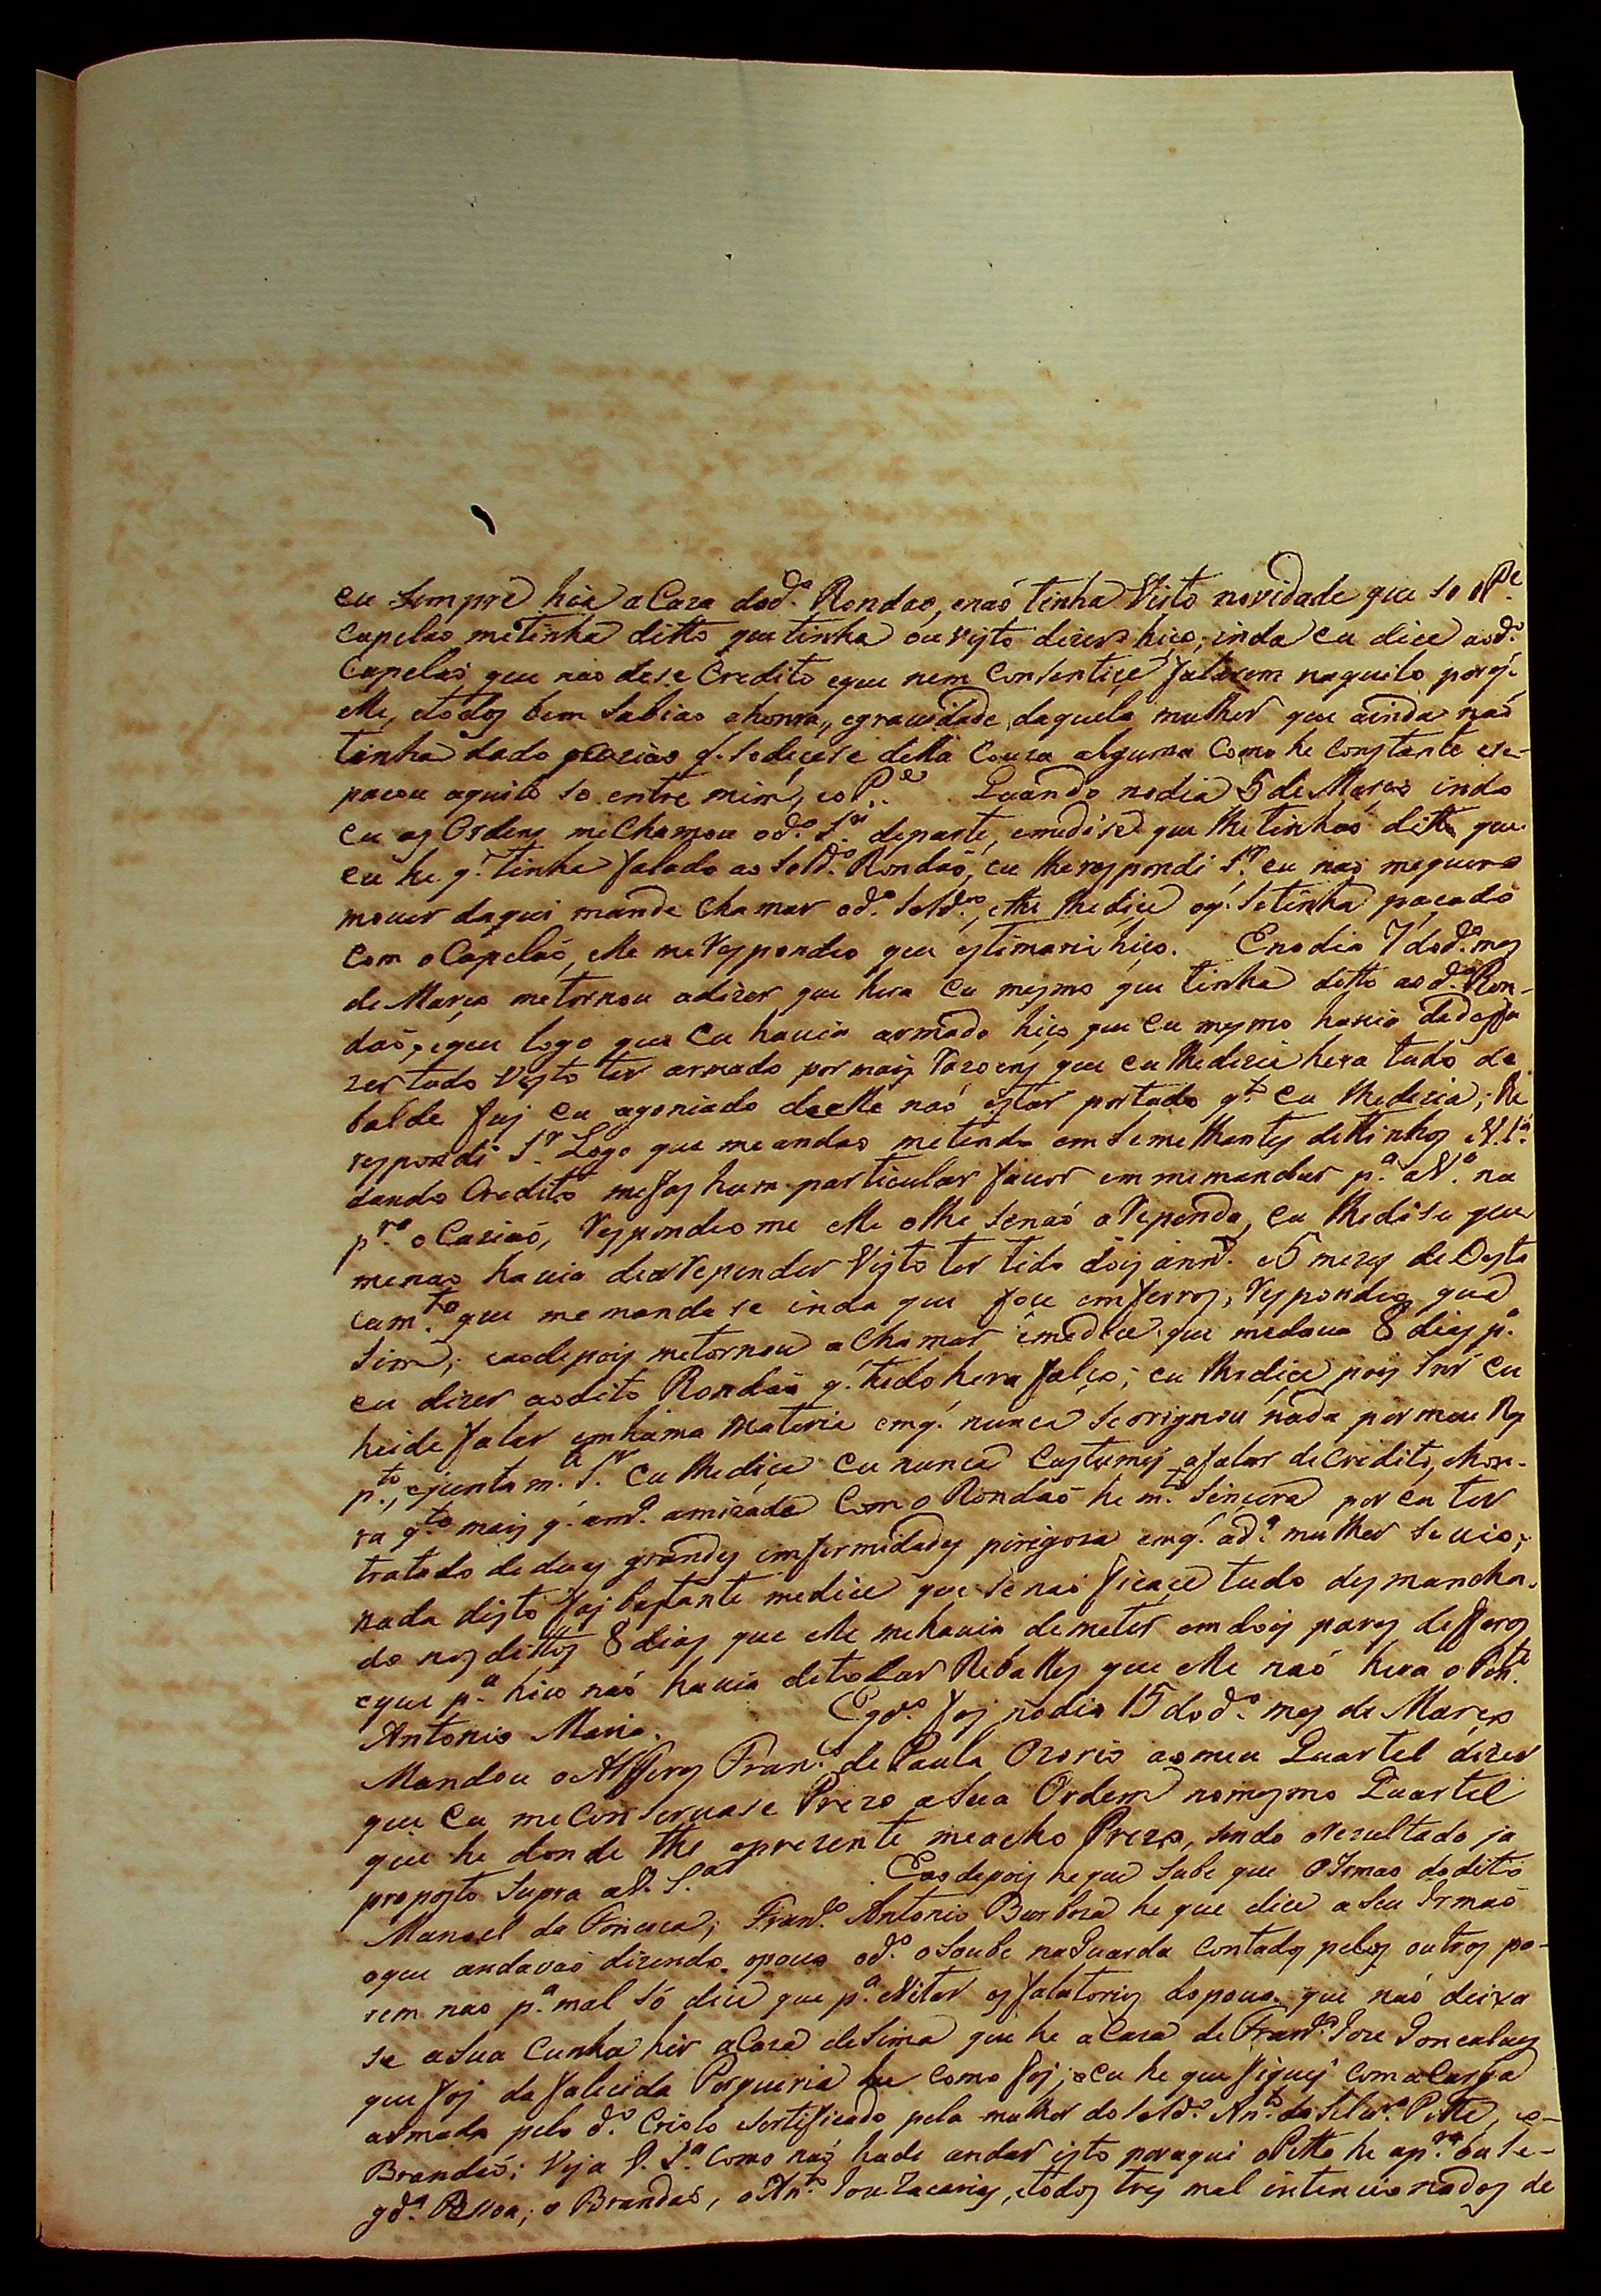 eu sempre hia a Caza dod.º Rondaõ, enaõ tinha Visto novidade que so oP.e
Capelaõ metinha ditto que tinha ouvisto dizer hiço, inda eu dice aod.º
Capelaõ que naõ dese Credito eque nem Consentiçe falarem naquilo porq.
elle, etodos bem Sabiaõ ahonra, egravidade daquela mulher que ainda naõ
tinha dado ocaziaõ q. sediçese della Couza alguma Como he Constante ese-
paçou aquilo so entre mim, eoP.e Quando nodia 5 de Março indo
eu as Ordens meChamou od.º S.r departe, emedise que lhe tinhaõ ditto que
eu he q. tinha falado ao Sold.º Rondaõ, eu lhe respondi S.r eu naõ mequero
mover daqui mande Chamar od.º Sold.º, elhe lhediçe oq. Setinha paçado
Com oCapelaõ, elle meRespondeo que estimaria hiço. Enodia 7 dod.º mes
de Março metornou adizer que hera eu mesmo que tinha ditto aod.º Ron-
daõ, eque logo que eu havia armado hiço que eu mesmo havia dedesfa
zer tudo Visto ter armado por mais Razoens que eu lhedizia hera tudo de
balde fui eu agoniado deelle naõ estar portudo q.to eu lhedizia; lhe
respondi S.r Logo que meandaõ metendo em Semelhantes dittinhos eV.S.a
dando Credito mefas hum particular favor em memandar p.a aV.a na
p.ra oCaziaõ, Respondeome elle olhe Senaõ aRependa, eu lhedise que
menaõ havia deaRepender Visto ter tido dois ann.s e5 mezes de Desta
cam.to que memandase inda que foce emferros, Respondeo que
Sim; eaodepois metornou aChamar emedice que medava 8 dias p.a
eu dizer aodito Rondaõ q. tudo hera falço; eu lhediçe pois Snr eu
heide falar emhuma Materia emq. nunca Seorignou nada por meu Res
p.to, ejuntam.te S.r eu lhediçe eu nunca Custumei afalar de Credito, eHon-
ra q.to mais q. am.a amizade Com o Rondaõ he m.to Sincera por eu ter
tratado deduas grandes imfermidades pirigoza emq. ad.a mulher Sevio;
nada disto foi bastante medice que Senaõ ficaçe tudo desmancha-
do nos dittos 8 dias que elle mehavia demeter emdois pares deferros
eque p.a hiço naõ havia detocar Rebattes que elle naõ hera oTen.te
Antonio Maria. Eqd.º foi nodia 15 dod.º mes de Março
Mandou oAlferes Fran.co de Paula Ozorio aomeu Quartel dizer
que eu meConservase Prezo aSua Ordem nomesmo Quartel
que he donde the oprezente meacho Prezo, sendo oRezultado ja
proposto Supra aV. S.a Eaodepois heque Sube que OIrmaõ dodito
Manoel da Fonceca; Fran.co Antonio Barboza he que dice aSeu Irmaõ
oque andavaõ dizendo opovo od.º oSoube naGuarda Contado pelos outros po-
rem naõ p.a mal Só dice que p.a eVitar os falatorios dopovo que naõ deixa
se aSua Cunha hir aCaza deSima que he aCaza de Fran.co Joze Goncalves
que foi dafalecida Porqueria he como foi; eeu he que fiquei Com aCarga
armada pelo d.º Criolo eSertificado pela mulher do Sold.º An.to da Silv.a Pitta, eo-
Brandaõ; Veja V. S.a Como naõ hade andar isto poraqui oPitta he ap.ra ou Se-
gd.a Pessoa; o Brandaõ, oAn.to Joze Zacarias, etodos tres mal intencionados de